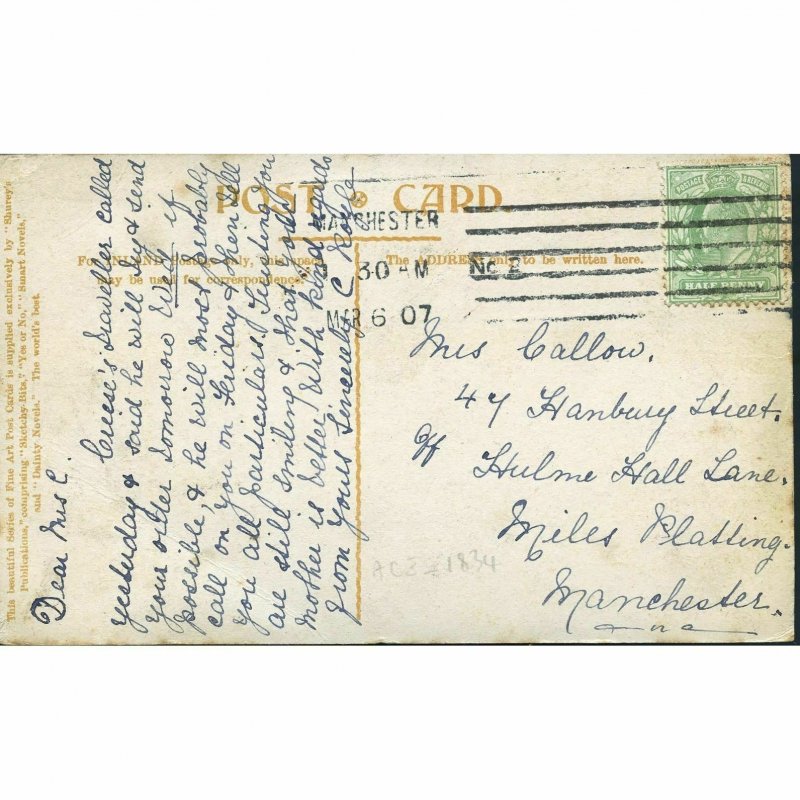 This beautiful Series of Fine Art Post Cards is supplied exclusively by "Shurey's
Publications," comprising "Sketchy Bits," "Yes or No," "Smart Novels,"
and "Dainty Novels." The world's best.
POST CARD
For INLAND Postage only, this space
may be used for correspondence.
The ADDRESS only to be written here.
MANCHESTER
30 AM
No 2
MAR 6 07
POSTAGE & REVENUE
HALF PENNY
Dear Mrs C.
traveller called
yesterday & said he will try & send
your order tomorrow Wed if
possible, & he will most probably
call on you on Friday & then tell
you all particulars, trusting you
are still smiling & that
mother is better. With kind regards
from yours Sincerely C
Mrs Callow.
47 Hanbury Street.
Off
Hulme Hall Lane.
Miles Platting.
Manchester.
ACZ #1834